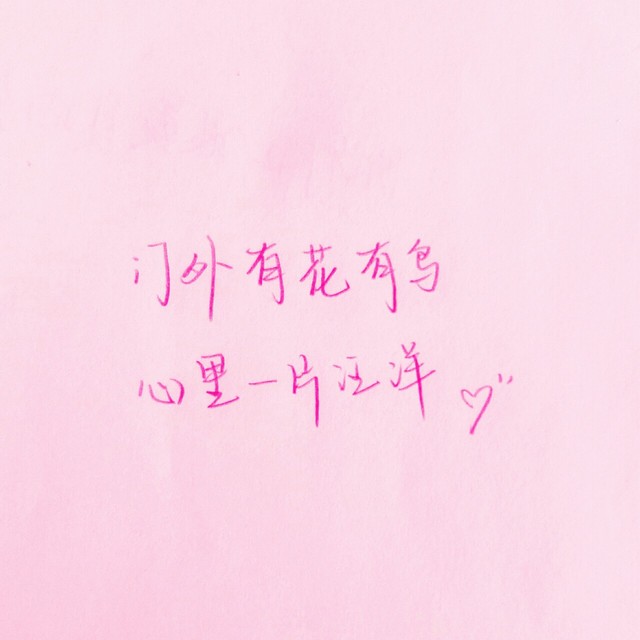 门外有花有鸟
心里一片汪洋